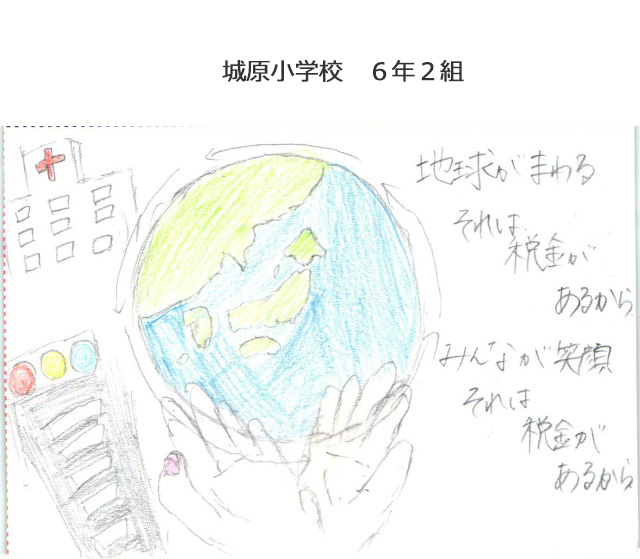 城原小学校　６年２組
地球がまわる
それは
税金が
あるから
みんなが笑顔
それは
税金が
あるから